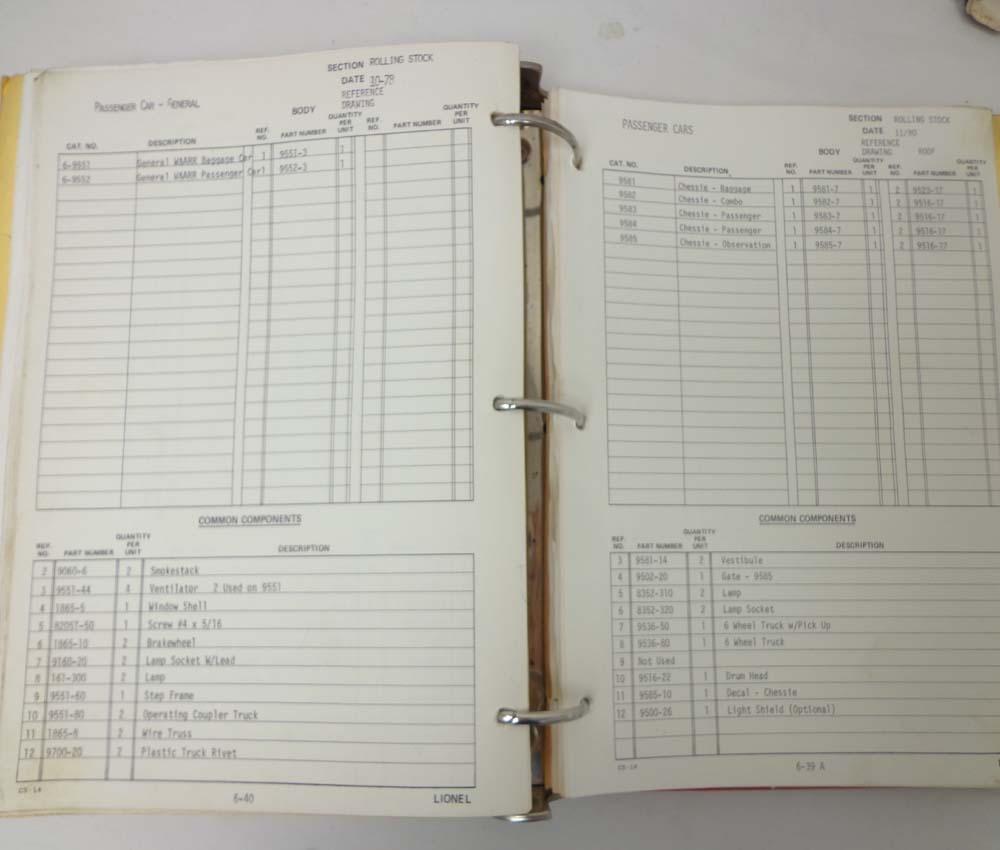 SECTION ROLLING STOCK
DATE 10-78
REFERENCE
DRAWING
PASSENGER CAR - GENERAL
BODY
CAT. NO. DESCRIPTION REF. NO. PART NUMBER QUANTITY PER UNIT REF. NO. PART NUMBER QUANTITY PER UNIT
6-9551 General W&ARR Baggage Car 1 9551-3 1
6-9552 General W&ARR Passenger Car 1 9552-3 1
COMMON COMPONENTS
REF. NO. PART NUMBER QUANTITY PER UNIT DESCRIPTION
2 9060-6 2 Smokestack
3 9551-44 4 Ventilator 2 Used on 9551
4 1865-5 1 Window Shell
5 8205T-50 1 Screw #4 x 5/16
6 1865-10 2 Brakewheel
7 9160-20 2 Lamp Socket W/Lead
8 161-300 2 Lamp
9 9551-60 1 Step Frame
10 9551-80 2 Operating Coupler Truck
11 1865-8 2 Wire Truss
12 9700-20 2 Plastic Truck Rivet
CS-14
6-40
LIONEL
SECTION ROLLING STOCK
DATE 11/80
REFERENCE
DRAWING
PASSENGER CARS
BODY ROOF
CAT. NO. DESCRIPTION REF. NO. PART NUMBER QUANTITY PER UNIT REF. NO. PART NUMBER QUANTITY PER UNIT
9581 Chessie - Baggage 1 9581-7 1 2 9525-17 1
9582 Chessie - Combo 1 9582-7 1 2 9516-17 1
9583 Chessie - Passenger 1 9583-7 1 2 9516-17 1
9584 Chessie - Passenger 1 9584-7 1 2 9516-17 1
9585 Chessie - Observation 1 9585-7 1 2 9516-17 1
COMMON COMPONENTS
REF. NO. PART NUMBER QUANTITY PER UNIT DESCRIPTION
3 9581-14 2 Vestibule
4 9502-20 1 Gate - 9585
5 8352-310 2 Lamp
6 8352-320 2 Lamp Socket
7 9536-50 1 6 Wheel Truck w/Pick Up
8 9536-80 1 6 Wheel Truck
9 Not Used
10 9516-22 1 Drum Head
11 9585-10 1 Decal - Chessie
12 9500-26 1 Light Shield (Optional)
CS-14
6-39 A